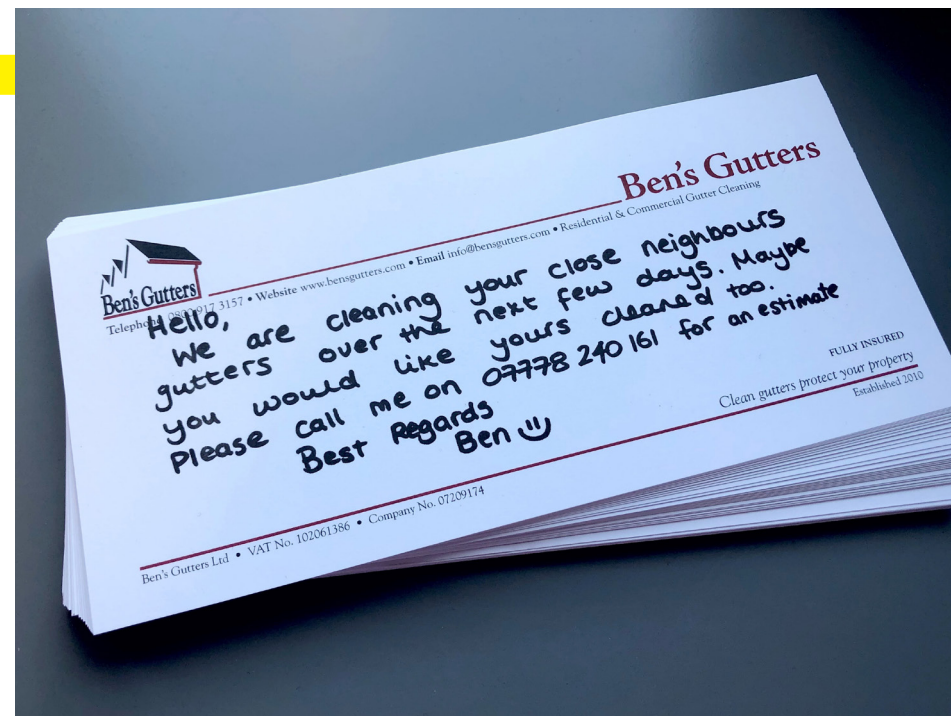 Ben's Gutters
Ben's Gutters
Telephone 0800 917 3157 • Website www.bensgutters.com • Email info@bensgutters.com • Residential & Commercial Gutter Cleaning
Hello,
We are cleaning your close neighbours
gutters over the next few days. Maybe
you would like yours cleaned too.
Please call me on 07778 240 161 for an estimate
Best Regards
Ben
FULLY INSURED
Clean gutters protect your property
Established 2010
Ben's Gutters Ltd • VAT No. 102061386 • Company No. 07209174